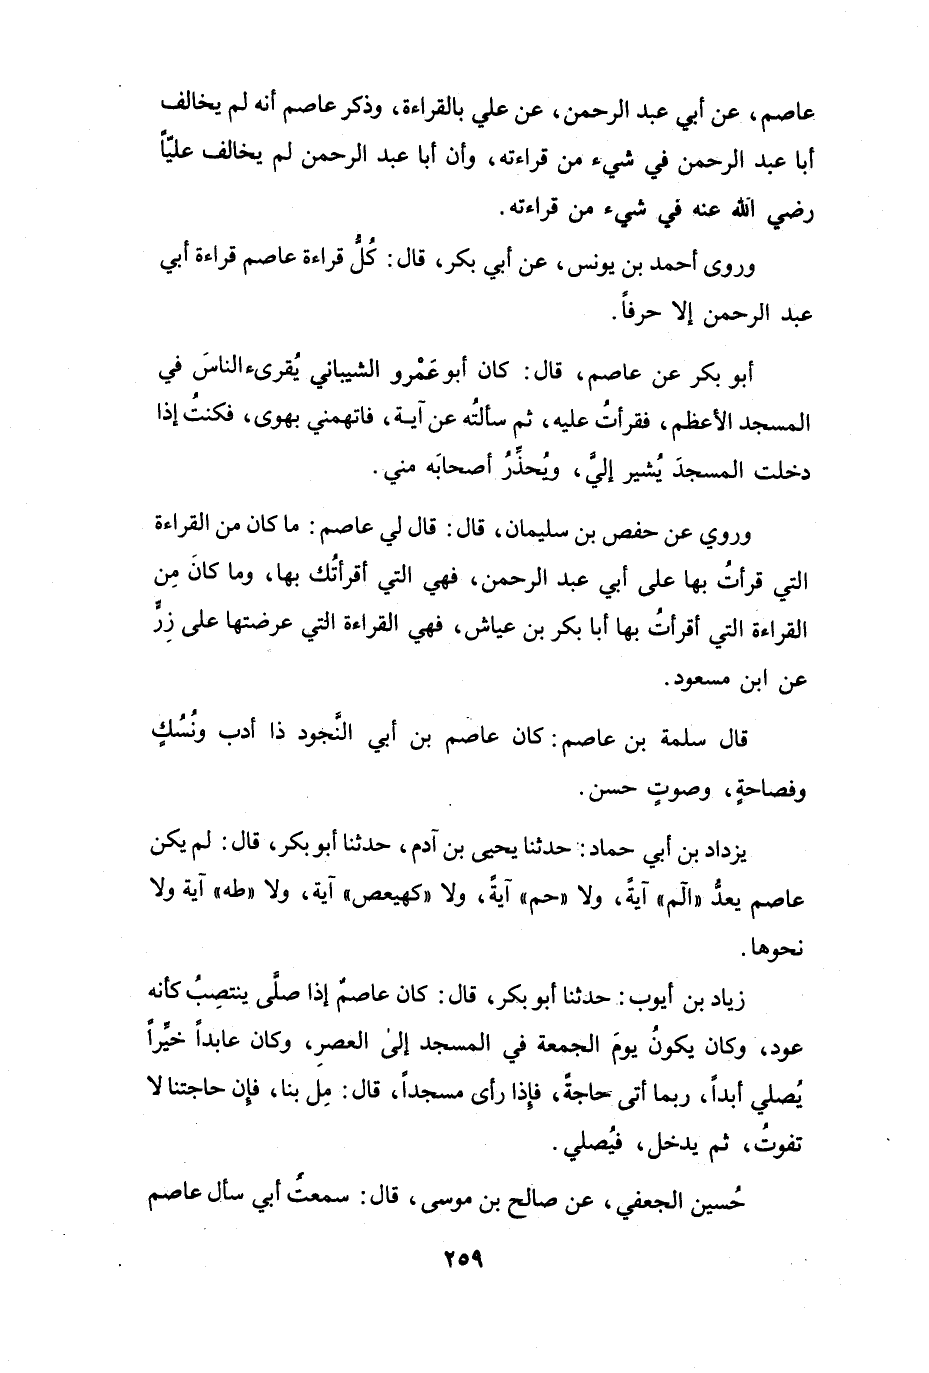 عاصم، عن أبي عبد الرحمن، عن علي بالقراءة، وذكر عاصم أنه لم يخالف
أبا عبد الرحمن في شيء من قراءته، وأن أبا عبد الرحمن لم يخالف عليّاً
رضي الله عنه في شيء من قراءته.
وروى أحمد بن يونس، عن أبي بكر، قال: كُلُّ قراءة عاصم قراءة أبي
عبد الرحمن إلا حرفاً.
أبو بكر عن عاصم، قال: كان أبو عَمْرو الشيباني يُقرىء الناسَ في
المسجد الأعظم، فقرأتُ عليه، ثم سألتُه عن آية، فاتهمني بهوى، فكنتُ إذا
دخلت المسجدَ يُشير إليَّ، ويُحذِّرُ أصحابَه مني.
وروي عن حفص بن سليمان، قال: قال لي عاصم: ما كان من القراءة
التي قرأتُ بها على أبي عبد الرحمن، فهي التي أقرأتُك بها، وما كانَ مِن
القراءة التي أقرأتُ بها أبا بكر بن عياش، فهي القراءة التي عرضتها على زِرٍّ
عن ابن مسعود.
قال سلمة بن عاصم: كان عاصم بن أبي النَّجود ذا أدب ونُسُكٍ
وفصاحةٍ، وصوتٍ حسن.
يزداد بن أبي حماد: حدثنا يحيى بن آدم، حدثنا أبو بكر، قال: لم يكن
عاصم يعدُّ «الٓم» آيةً، ولا «حم» آيةً، ولا «كهيعص» آية، ولا «طه» آية ولا
نحوها.
زياد بن أيوب: حدثنا أبو بكر، قال: كان عاصمٌ إذا صلَّى ينتصِبُ كأنه
عود، وكان يكونُ يومَ الجمعة في المسجد إلىٰ العصرِ، وكان عابداً خيِّراً
يُصلي أبداً، ربما أتى حاجةً، فإذا رأى مسجداً، قال: مِل بنا، فإن حاجتنا لا
تفوتُ، ثم يدخل، فيُصلي.
حُسين الجعفي، عن صالح بن موسى، قال: سمعتُ أبي سأل عاصم
٢٥٩